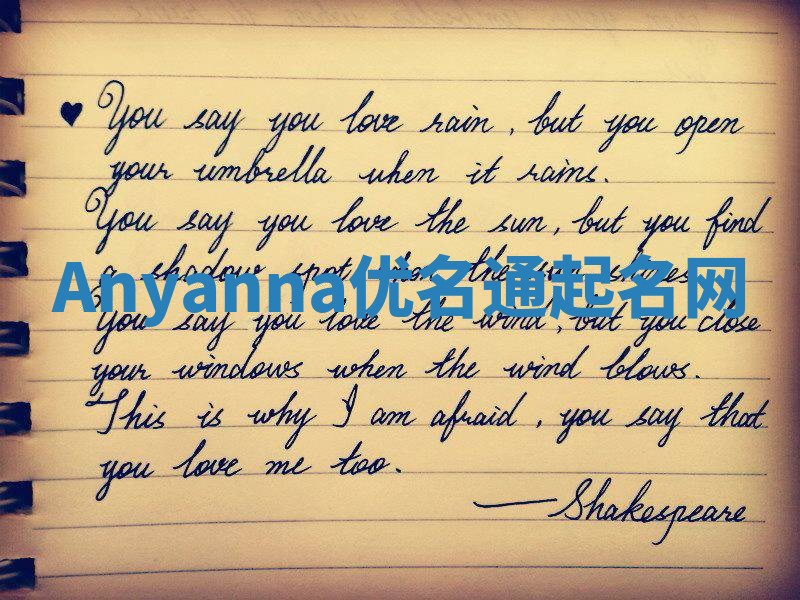 ♥ You say you love rain, but you open
your umbrella when it rains.
You say you love the sun, but you find
a shadow spot when the sun shines.
Anyanna优名通起名网
You say you love the wind, but you close
your windows when the wind blows.
This is why I am afraid, you say that
you love me too.
—Shakespeare